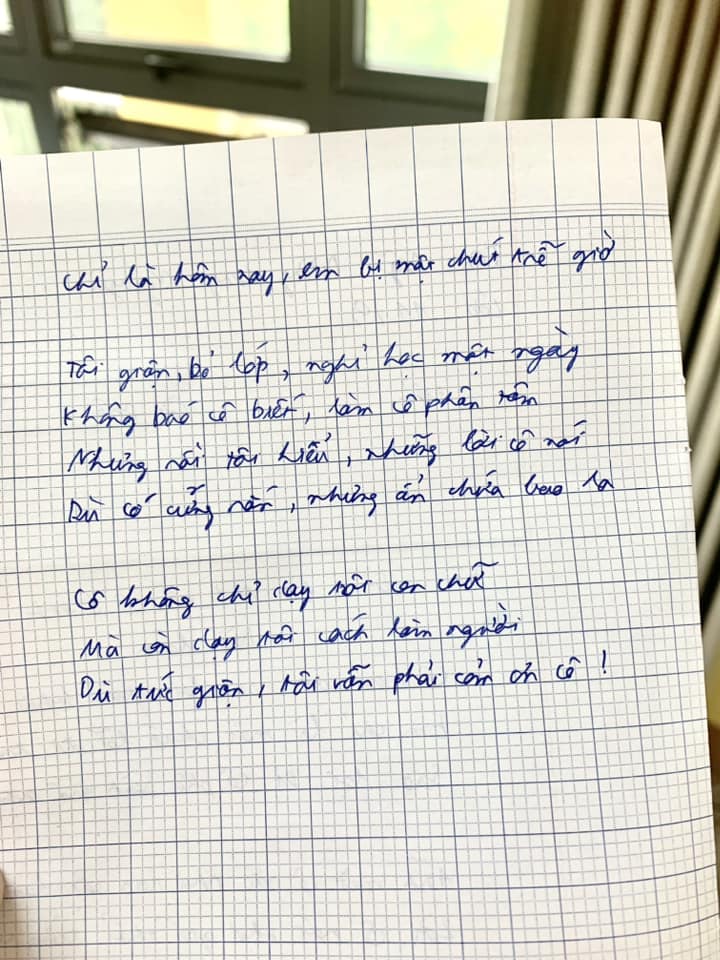 Chỉ là hôm nay, em bị mật chút trễ giờ
Tôi giận, bỏ lớp, nghỉ học một ngày
Không báo cô biết, làm cô phân tâm
Nhưng rồi tôi hiểu, những lời cô nói
Dù có cứng rắn, nhưng ẩn chứa bao la
Cô không chỉ dạy tôi con chữ
Mà còn dạy tôi cách làm người
Dù tức giận, tôi vẫn phải cảm ơn cô!